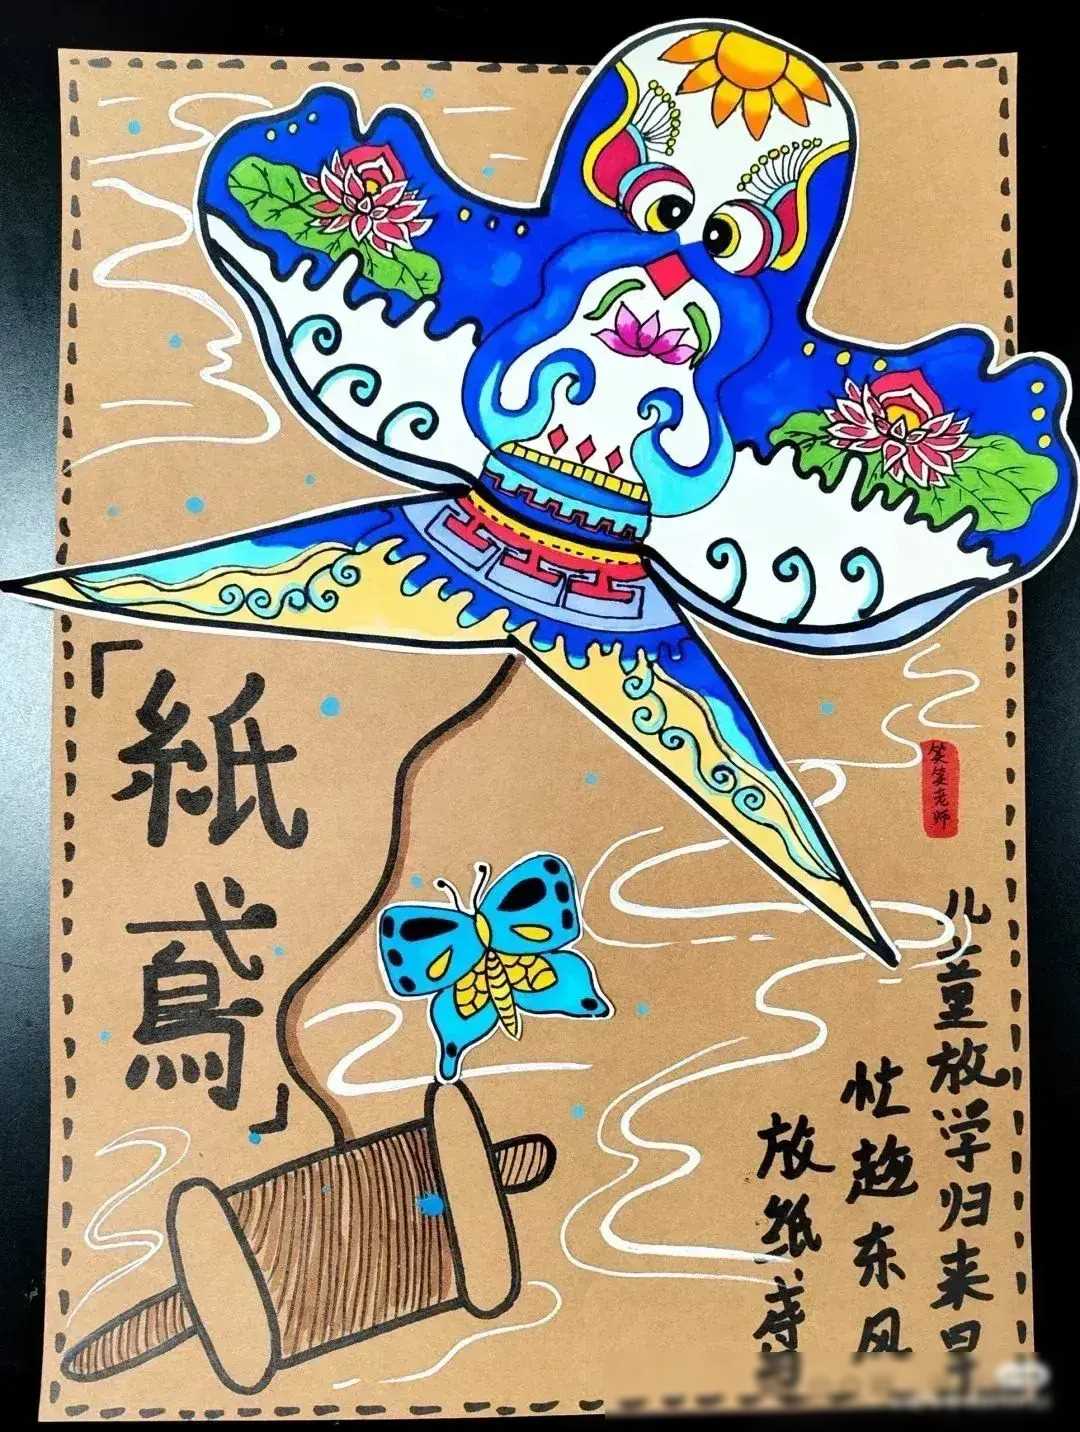 「紙鳶」
笑笑老师
儿童放学归来早
忙趁东风
放纸鸢